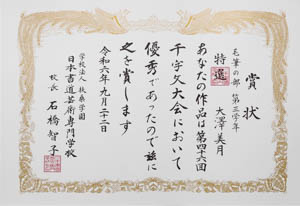 賞状
毛筆の部 第三学年
特選
大澤美月
あなたの作品は第四十六回
千字文大会において
優秀であったので茲に
之を賞します
令和六年九月二十二日
学校法人 扶桑学園
日本書道芸術専門学校
校長 石橋智子